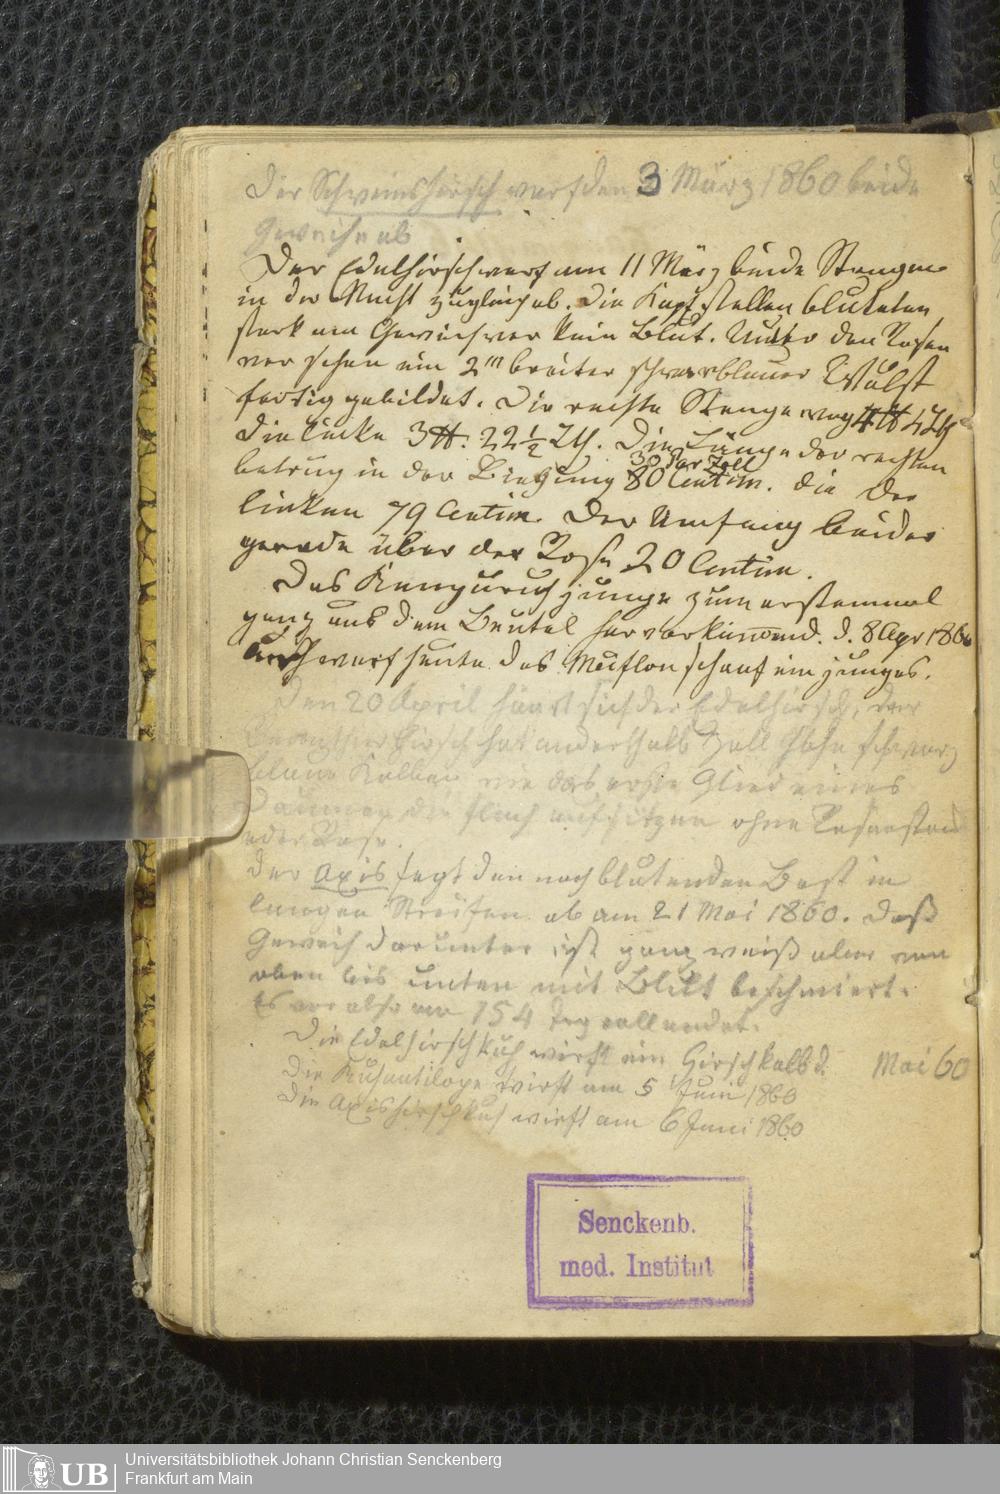 Der Schweinshirsch warf den 3 März 1860 beide
Geweihe ab
Der Edelhirsch warf am 11 März beide Stangen
in der Nacht zugleich ab. Die Kopfstellen bluteten
stark am Geweih war kein Blut. Unter den Rosen
war schon ein 2''' breiter schwarzblauer Wulst
fertig gebildet. Die rechte Stange wog 4 ℔ 4 Lth
die linke 3 ℔. 22½ Lth. Die Länge der rechten
30 Par Zoll
betrug in der Biegung 80 Centim. die der
linken 79 Centim. Der Umfang beider
gerade über der Rose 20 Centim.
Das Kenguruh junge zum erstenmal
ganz aus dem Beutel hervorkommend. d. 8 Apr 1860
Auch warf heute das Muflonschaaf ein junges.
Den 20 April häart sich der Edelhirsch, der
hirsch hat anderthalb Zoll hohe schwarz
blaue Kolben wie das erste Glied eines
Daumen die flach aufsitzen ohne Rosenstock
oder Rose.
Der Axis fegt den noch blutenden Bast in
langen Streifen ab am 21 Mai 1860. Daß
Geweih darunter ist ganz weiß aber von
oben bis unten mit Blut beschmiert.
Es war also am 154 Tag vollendet.
Die Edelhirschkuh wirft ein Hirschkalb d. Mai 60
Die Kuhantilope wirft am 5 Juni 1860
Die Axishirschkuh wirft am 6 Juni 1860
Senckenb.
med. Institut
UB
Universitätsbibliothek Johann Christian Senckenberg
Frankfurt am Main